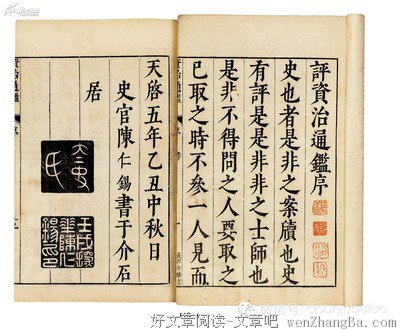 評資治通鑑序
史也者是非之案牘也史
有評是非是非之士師也
是非不得問之人要取之
已取之時不參一人見而
資治通鑑
序
天啓五年乙丑中秋日
史官陳仁錫書于介石
居
太史
氏
好文章阅读-文章吧
wenZhangBa.Com